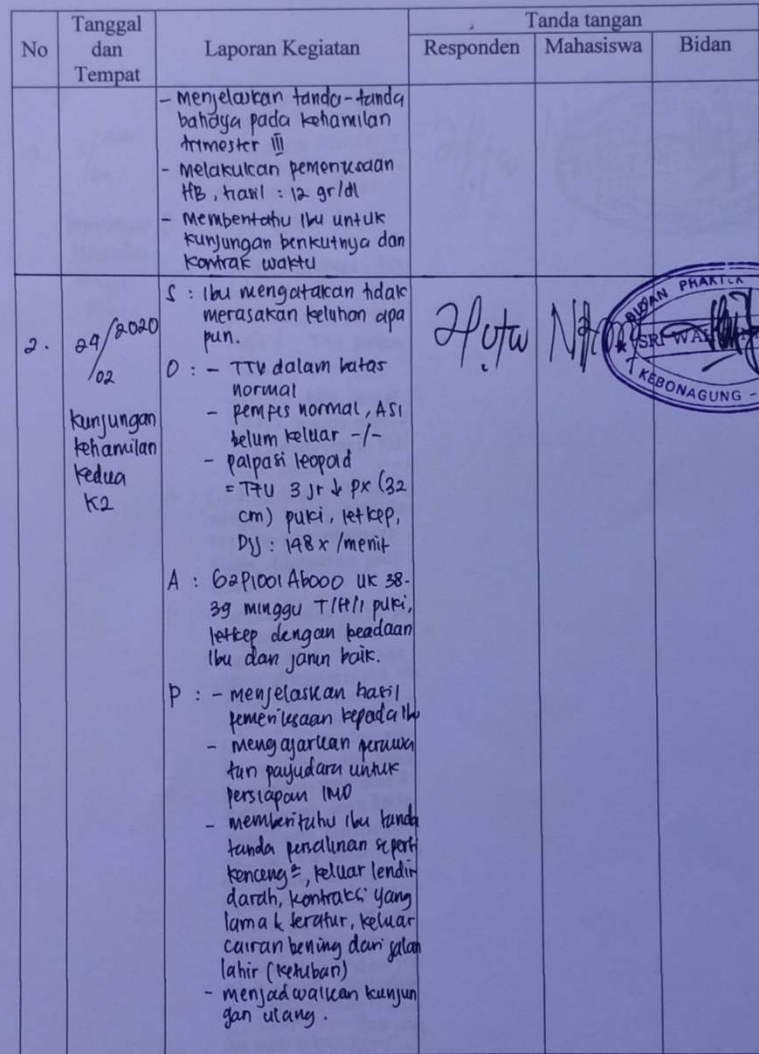 No
Tanggal
dan
Tempat
Laporan Kegiatan
Tanda tangan
Responden
Mahasiswa
Bidan
- Menjelaskan tanda-tanda
bahaya pada kehamilan
trimester III
- Melakukan pemeriksaan
HB, hasil : 12 gr/dl
- Memberitahu ibu untuk
kunjungan berikutnya dan
kontrak waktu
2.
29/02 2020
kunjungan
kehamilan
kedua
K2
S : Ibu mengatakan tidak
merasakan keluhan apa
pun.
O : - TTV dalam batas
normal
- pemfis normal, ASI
belum keluar -/-
- palpasi leopold
= TFU 3 jr ↓ px (32
cm) puki, letkep,
DJJ : 148 x /menit
A : G2P1001Ab000 UK 38-
39 minggu T/H/I puki,
letkep dengan keadaan
Ibu dan janin baik.
P : - menjelaskan hasil
pemeriksaan kepada Ibu
- mengajarkan perawa
tan payudara untuk
persiapan IMD
- memberitahu ibu tanda
tanda persalinan seperti
kenceng², keluar lendir
darah, kontraksi yang
lama & teratur, keluar
cairan bening dari jalan
lahir (ketuban)
- menjadwalkan kunjun
gan ulang.
BIDAN PRAKTEK
SRI WA
KEBONAGUNG -